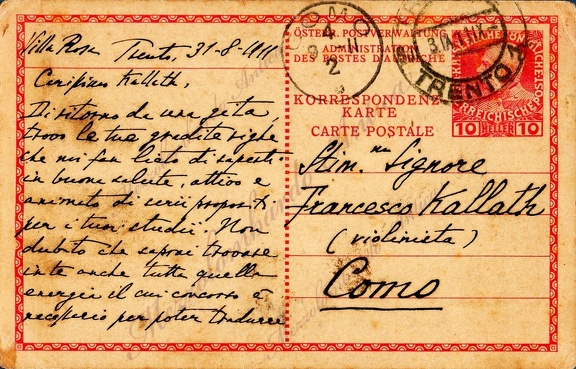 Villa Rosa Trento, 31-8-1911
Carissimo Kallath,
Di ritorno da una gita,
trovo le tue gradite righe
che mi fan lieto di saperti
in buona salute, attivo e
animato di serii propositi
per i tuoi studii. Non
dubito che saprai trovare
in te anche tutta quella
energia il cui concorso è
necessario per poter tradurre
ÖSTERR. POSTVERWALTUNG
ADMINISTRATION
DES POSTES D'AUTRICHE
KORRESPONDENZ-
KARTE
CARTE POSTALE
COMO
4-N
9 2
TRENTO 1
10 HELLER 10
Stim.mo Signore
Francesco Kallath
(violinista)
Como